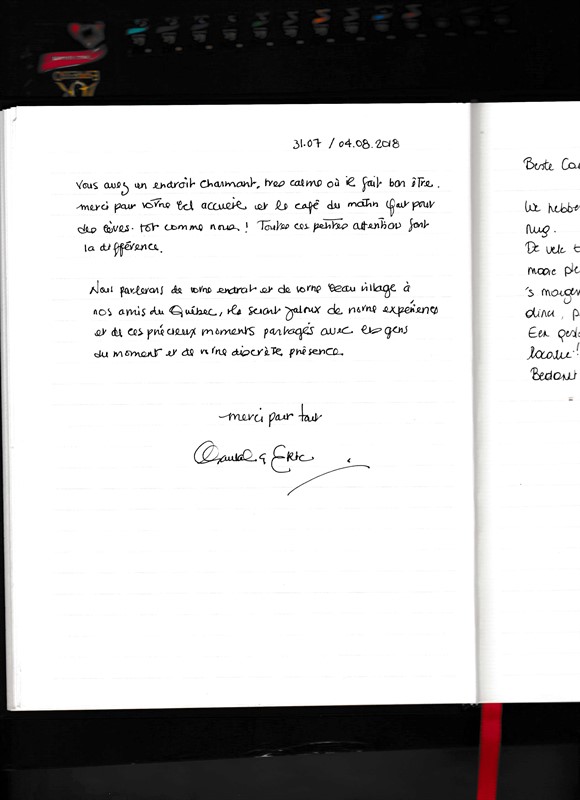 31.07 / 04.08.2018
Vous avez un endroit charmant, tres calme où il fait bon être.
merci pour votre bel accueil et le café du matin
des lèves-tôt comme nous! Toutes ces petites attention font
la différence.
Nous parlerons de votre endroit et de votre beau village à
nos amis du Québec, ils seront jaloux de notre expérience
et de ces précieux moments partagés avec les gens
du moment et de votre discrète présence.
merci pour tout
Chantal & Eric
Beste
We hebben
nug.
De vele
mooie
's morgen
Een
locatie!
ESPRESSO